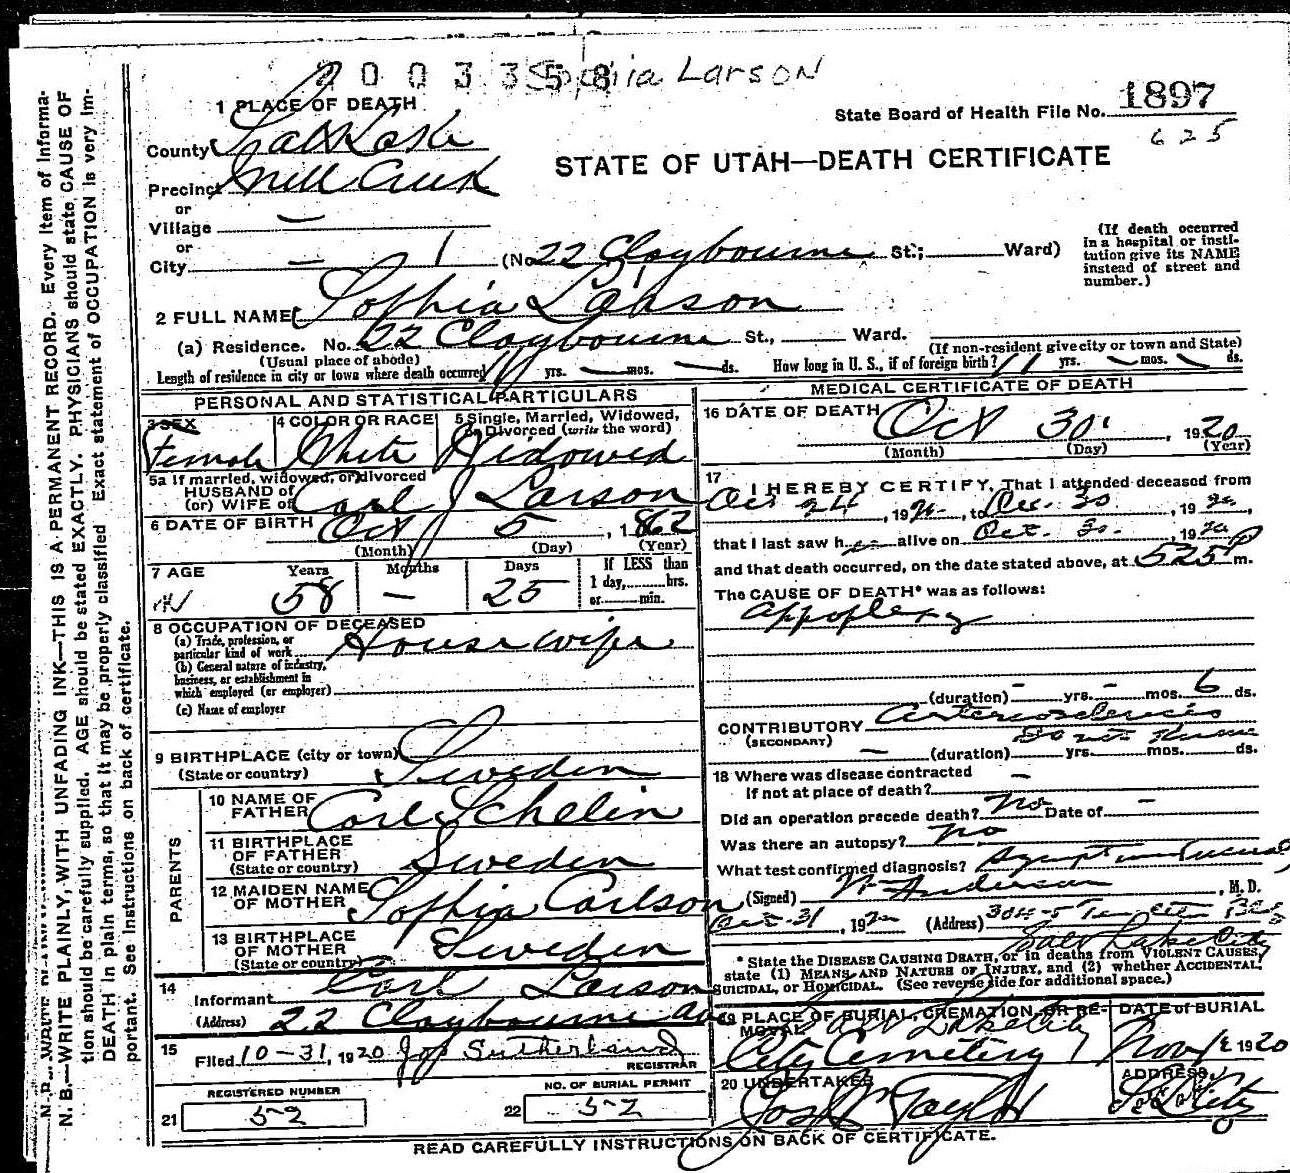 2003358
Sophia Larson
1 PLACE OF DEATH
State Board of Health File No. 1897
625
County Salt Lake
STATE OF UTAH—DEATH CERTIFICATE
Precinct Mill Creek
or
Village —
or
City — (No 22 Claybourne St.; Ward)
(If death occurred in a hospital or insti-
tution give its NAME
instead of street and
number.)
2 FULL NAME Sophia Larson
(a) Residence. No. 22 Claybourne St., Ward.
(Usual place of abode)
(If non-resident give city or town and State)
Length of residence in city or town where death occurred 11 yrs. — mos. — ds. How long in U. S., if of foreign birth? 11 yrs. — mos. — ds.
PERSONAL AND STATISTICAL PARTICULARS
3 SEX
Female
4 COLOR OR RACE
White
5 Single, Married, Widowed,
or Divorced (write the word)
Widowed
5a If married, widowed, or divorced
HUSBAND of
(or) WIFE of Carl J Larson
6 DATE OF BIRTH Oct 5, 1862
(Month) (Day) (Year)
7 AGE Years Months Days If LESS than
1 day, hrs.
or min.
58 — 25
8 OCCUPATION OF DECEASED
(a) Trade, profession, or
particular kind of work Housewife
(b) General nature of industry,
business, or establishment in
which employed (or employer)
(c) Name of employer
9 BIRTHPLACE (city or town)
(State or country) Sweden
PARENTS
10 NAME OF
FATHER Carl Schelin
11 BIRTHPLACE
OF FATHER
(State or country) Sweden
12 MAIDEN NAME
OF MOTHER Sophia Carlson
13 BIRTHPLACE
OF MOTHER
(State or country) Sweden
14
Informant Carl Larson
(Address) 22 Claybourne Ave
15
Filed 10-31, 1920 Jos Sutherland
REGISTRAR
REGISTERED NUMBER
21 52
NO. OF BURIAL PERMIT
22 52
MEDICAL CERTIFICATE OF DEATH
16 DATE OF DEATH Oct 30, 1920
(Month) (Day) (Year)
17
I HEREBY CERTIFY, That I attended deceased from
Oct 24, 1920, to Oct. 30, 1920,
that I last saw her alive on Oct. 30, 1920
and that death occurred, on the date stated above, at 525 P m.
The CAUSE OF DEATH* was as follows:
Appoplexy
(duration) - yrs. - mos. 6 ds.
CONTRIBUTORY Arteriosclerosis
(SECONDARY)
— (duration) yrs. mos. ds.
18 Where was disease contracted
If not at place of death? —
Did an operation precede death? No Date of —
Was there an autopsy? no
What test confirmed diagnosis?
(Signed) Anderson, M. D.
Oct-31, 1920 (Address) 304-5
Salt Lake City
* State the DISEASE CAUSING DEATH, or in deaths from VIOLENT CAUSES,
state (1) MEANS AND NATURE OF INJURY, and (2) whether ACCIDENTAL,
SUICIDAL, or HOMICIDAL. (See reverse side for additional space.)
19 PLACE OF BURIAL, CREMATION, OR RE-
MOVAL Salt Lake City
City Cemetery
DATE of BURIAL
Nov 1920
20 UNDERTAKER
Jos Wm Taylor
ADDRESS
S L City
READ CAREFULLY INSTRUCTIONS ON BACK OF CERTIFICATE.
N. B.—WRITE PLAINLY, WITH UNFADING INK—THIS IS A PERMANENT RECORD. Every item of informa-
tion should be carefully supplied. AGE should be stated EXACTLY. PHYSICIANS should state CAUSE OF
DEATH in plain terms, so that it may be properly classified. Exact statement of OCCUPATION is very im-
portant. See instructions on back of certificate.